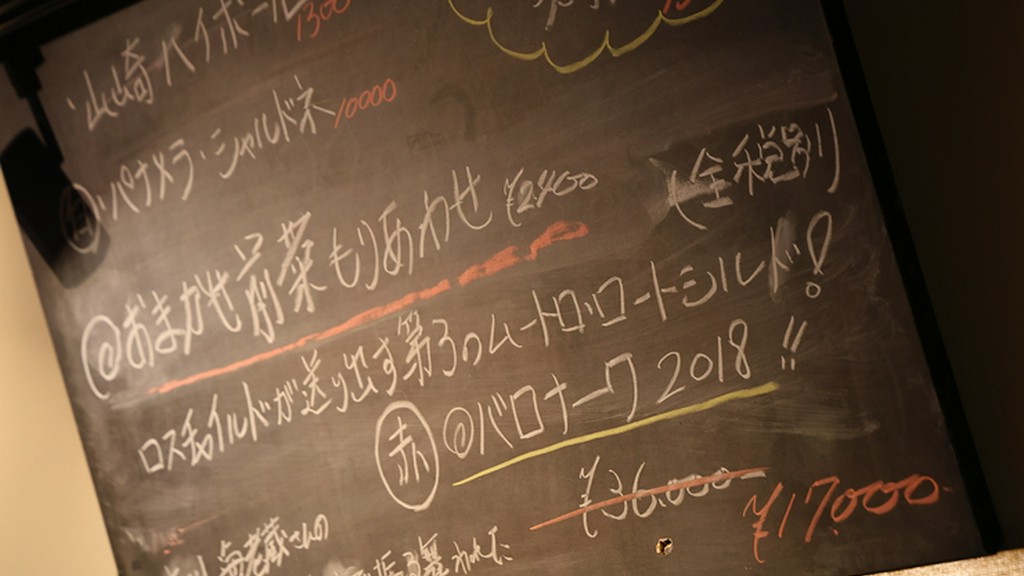 山崎ハイボール 1300
・パナメラ・シャルドネ 10000
@おまかせ前菜もりあわせ ¥2400
(全税別)
ロスチャイルドが送り出す第3のムートロッロートシルド!
赤 @バロナーク 2018 !!
¥36.000-
¥17.000-
海老蔵さんの